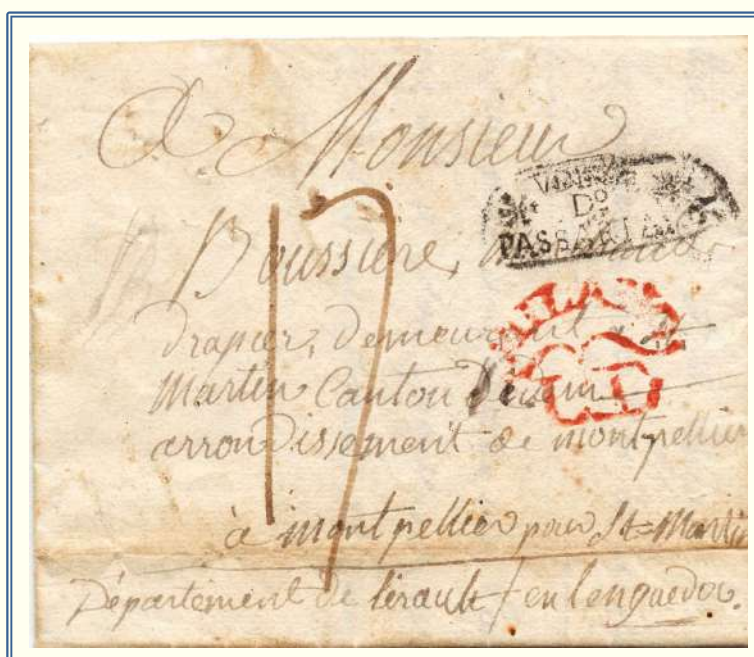 A Monsieur
Boussiere,
17
Do
PASSARIANO
drapier, demeurant a St
MILANO
Martin Canton
arrondissement de montpellier
à montpellier pour St=Martin
Département de lérault / en lenguedoc.